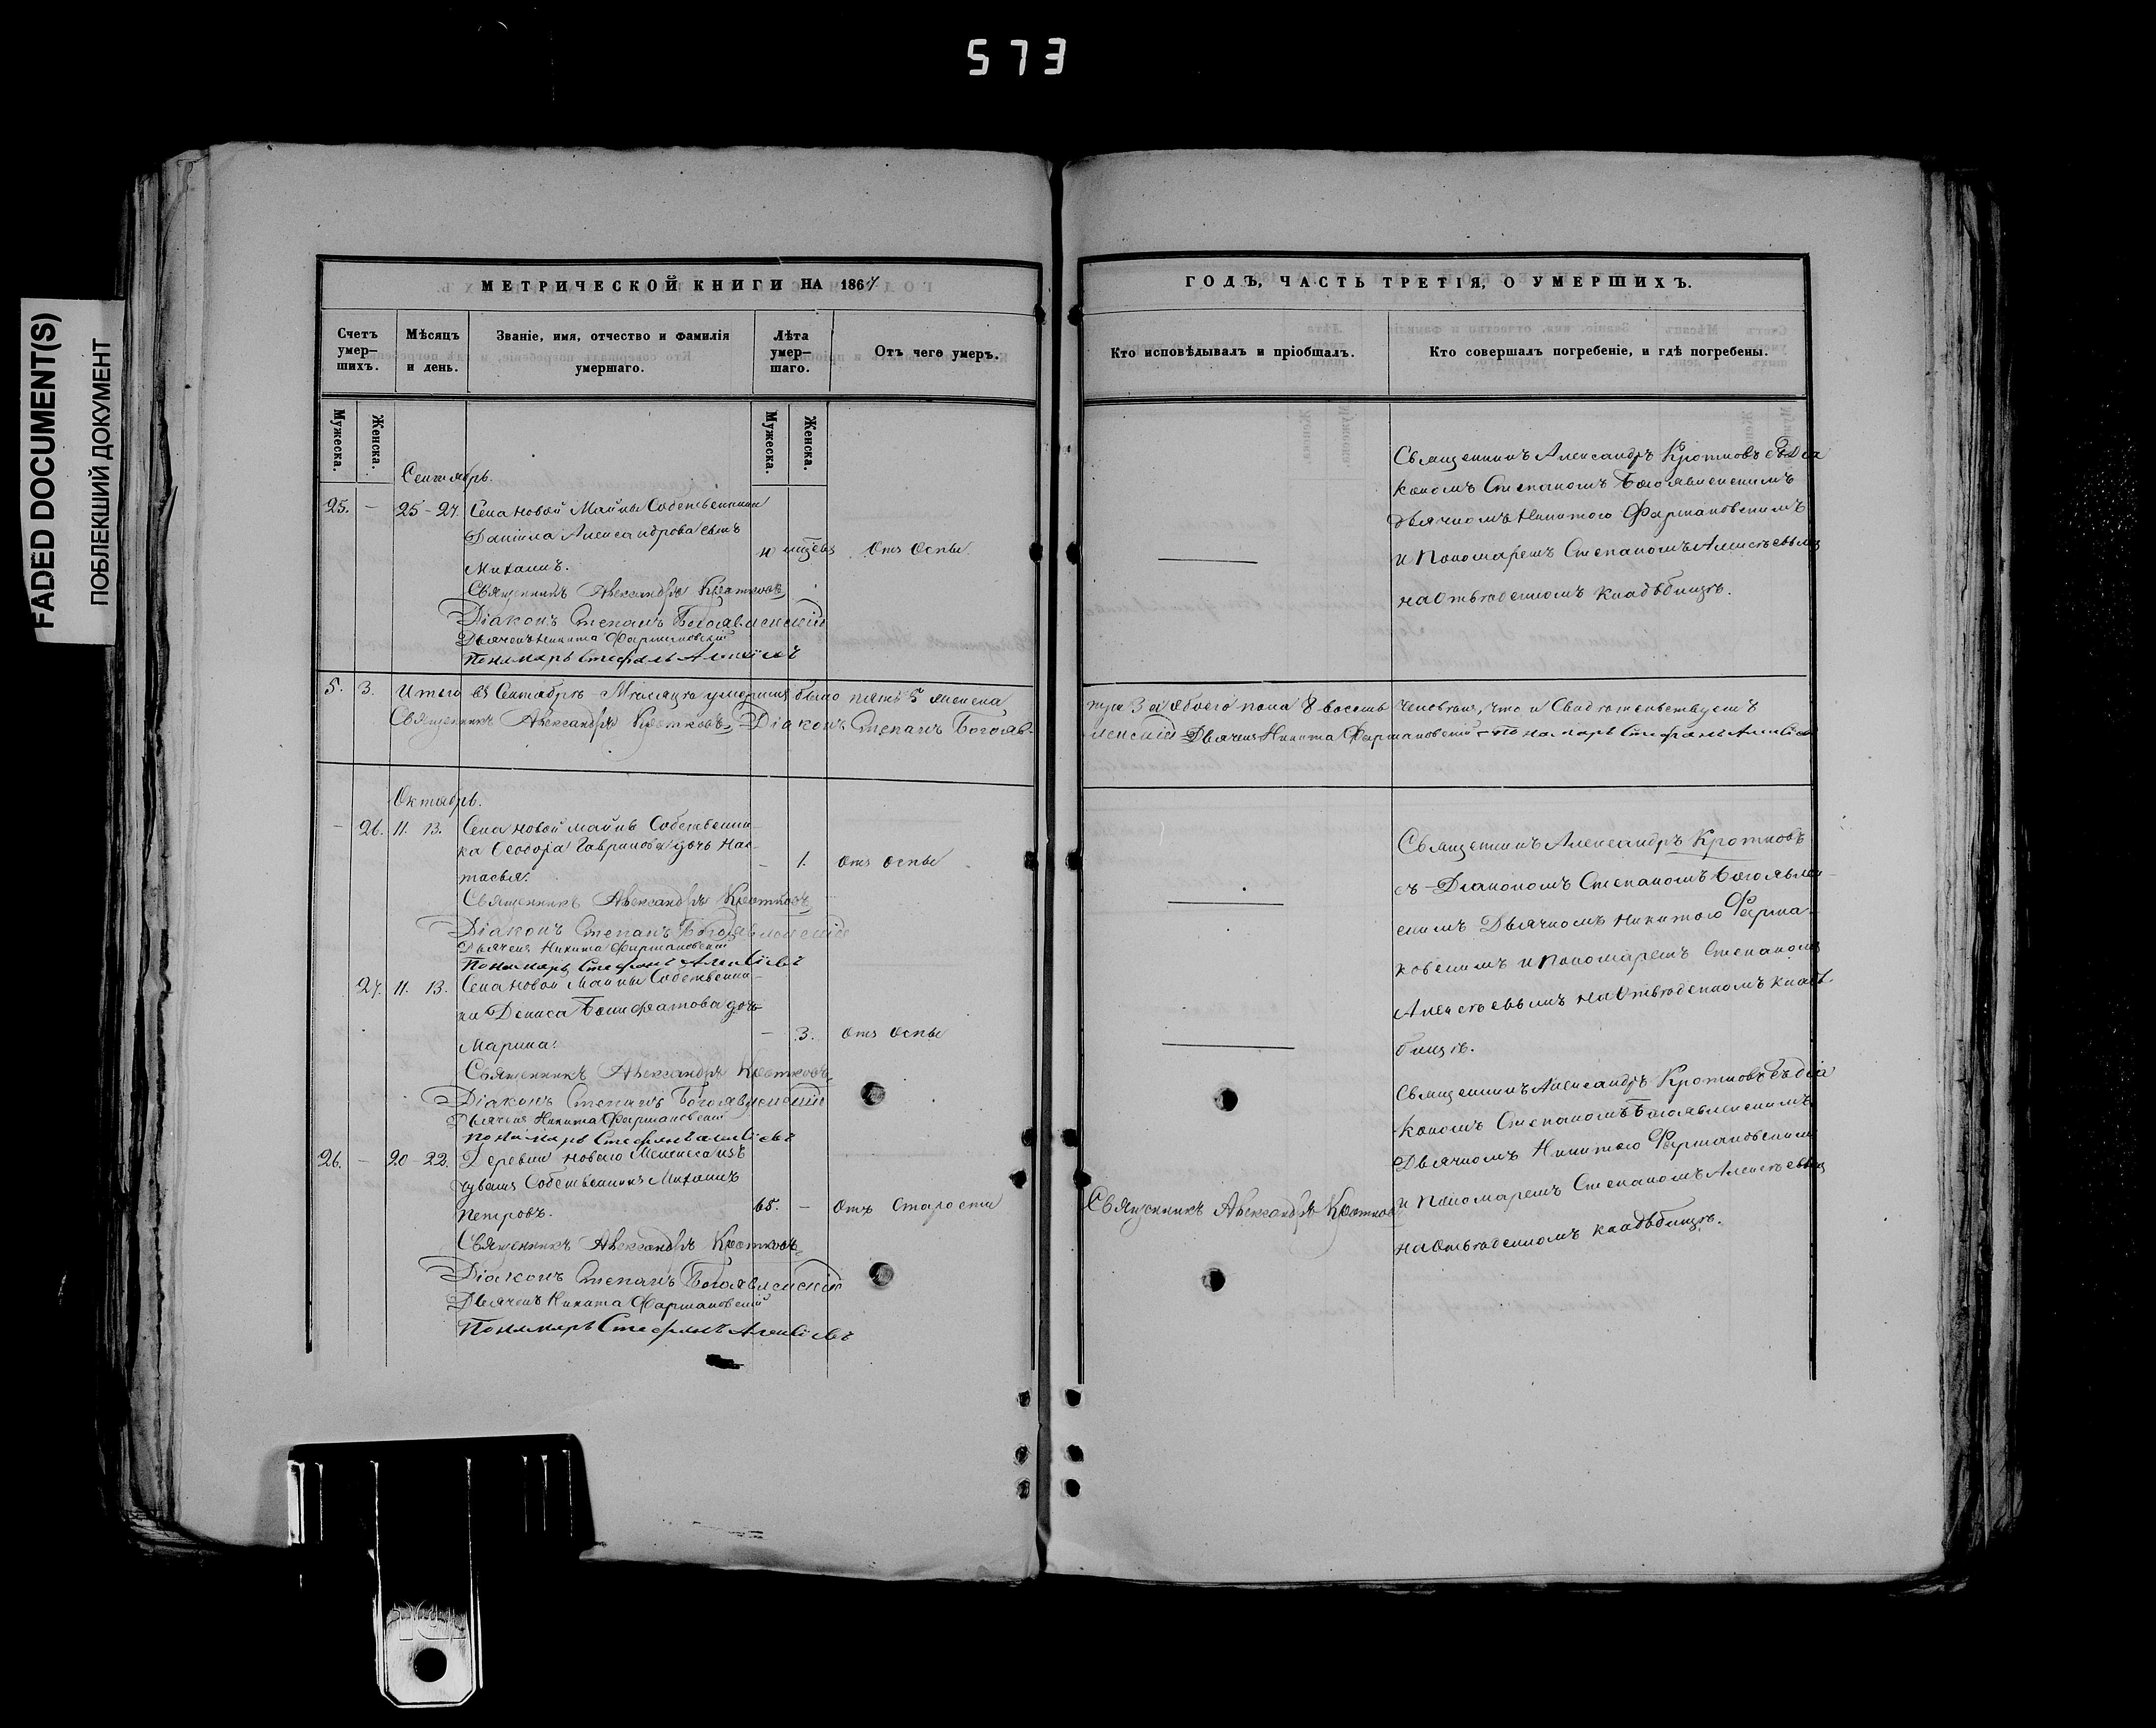 573
FADED DOCUMENT(S)
ПОБЛЕКШИЙ ДОКУМЕНТ
МЕТРИЧЕСКОЙ КНИГИ НА 1867
Счетъ умер-шихъ.
Мѣсяцъ и день.
Званіе, имя, отчество и фамилія умершаго.
Лѣта умер-шаго.
Отъ чего умеръ.
Мужеска.
Женска.
Мужеска.
Женска.
Сентябрь.
25. — 25-27. Села Новой Майны Собственника
Даніила Александрова сынъ
Михаилъ. Отъ Оспы.
Священникъ Александръ Кротковъ
Діаконъ Степанъ Богоявленскій
Дьячекъ Никита Фармаковскій
Пономарь Стефанъ Алексіевъ
5. 3. Итого въ Сентябрѣ Мѣсяцѣ умершихъ было пять 5 женска
Священникъ Александръ Кротковъ, Діаконъ Степанъ Богояв-
Октябрь.
— 26. 11. 13. Села Новой Майны Собственни-
ка Ѳеодора Гаврилова дочь Нас-
тасья. — 1. отъ оспы
Священникъ Александръ Кротковъ
Діаконъ Степанъ Богоявленскій
Дьячекъ Никита Фармаковскій
Пономарь Стефанъ Алексіевъ
27. 11. 13. Села Новой Майны Собственни-
ка Дениса Бонифатова дочь
Марина. — 3. отъ Оспы
Священникъ Александръ Кротковъ
Діаконъ Степанъ Богоявленскій
Дьячекъ Никита Фармаковскій
Пономарь Стефанъ Алексіевъ
26. — 20-22. Деревни Новаго изъ
чувашъ Собственникъ Михаилъ
Петровъ. 65. — Отъ Старости
Священникъ Александръ Кротковъ
Діаконъ Степанъ Богоявленскій
Дьячекъ Никита Фармаковскій
Пономарь Стефанъ Алексіевъ
ГОДЪ, ЧАСТЬ ТРЕТІЯ, О УМЕРШИХЪ.
Кто исповѣдывалъ и пріобщалъ.
Кто совершалъ погребеніе, и гдѣ погребены.
Священникъ Александръ Кротковъ съ Діа
кономъ Степаномъ Богоявленскимъ
Дьячкомъ Никитою Фармаковскимъ
и Пономаремъ Степаномъ Алексѣевымъ
на Отведенномъ кладбищѣ.
три 3 а обоего пола 8 восемь человѣкъ, что и Свидѣтельствуемъ
ленскій Дьячекъ Никита Фармаковскій — Пономарь Стефанъ Алексіевъ
Священникъ Александръ Кротковъ
съ Діакономъ Степаномъ Богоявлен-
скимъ Дьячкомъ Никитою Фарма-
ковскимъ и Пономаремъ Степаномъ
Алексѣевымъ на Отведенномъ клад
бищѣ.
Священникъ Александръ Кротковъ съ діа
кономъ Степаномъ Богоявленскимъ
Дьячкомъ Никитою Фармаковскимъ
и Пономаремъ Степаномъ Алексѣевымъ
на Отведенномъ кладбищѣ.
Священникъ Александръ Кротковъ